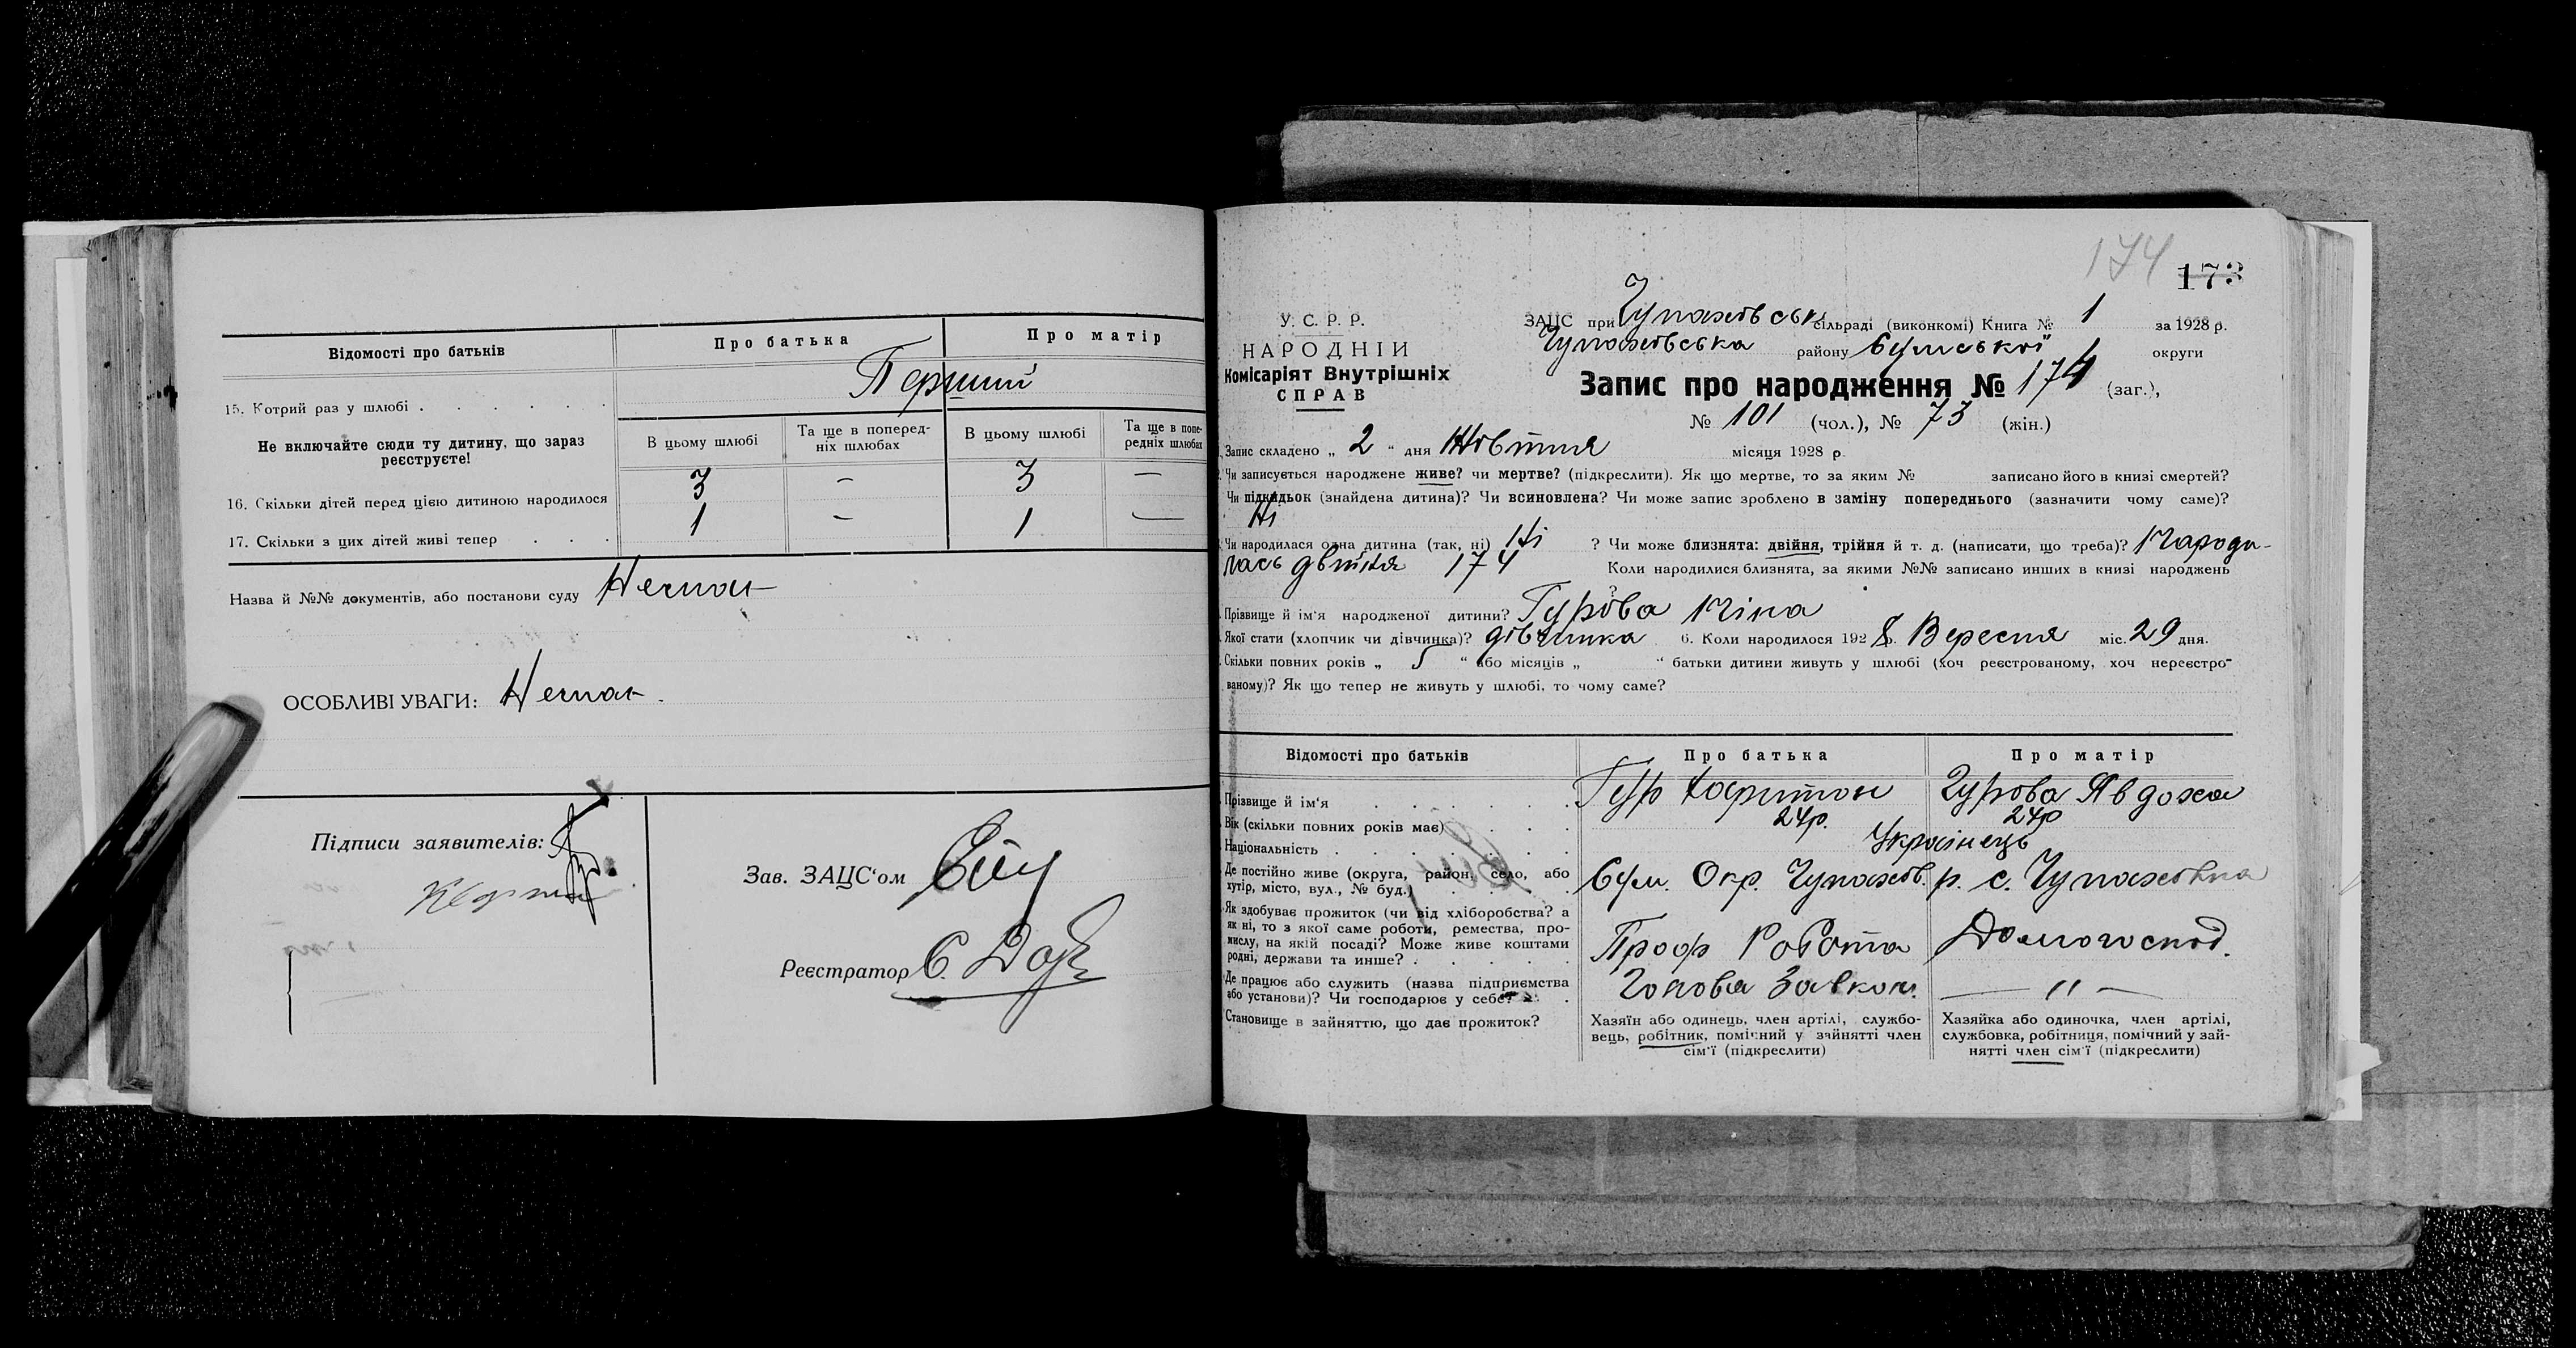 Відомості про батьків
Про батька
Про матір
15. Котрий раз у шлюбі
Перший
Не включайте сюди ту дитину, що зараз реєструєте!
В цьому шлюбі
Та ще в попередніх шлюбах
В цьому шлюбі
Та ще в попередніх шлюбах
16. Скільки дітей перед цією дитиною народилося 3 - 3 -
17. Скільки з цих дітей живі тепер . . . 1 - 1 -
Назва й №№ документів, або постанови суду Немає
ОСОБЛИВІ УВАГИ: Немає.
Підписи заявителів:
Зав. ЗАЦС'ом
Реєстратор С.
174
173
У. С. Р. Р.
НАРОДНІЙ
Комісаріят Внутрішніх
СПРАВ
ЗАЦС при Чупахівськ сільраді (виконкомі) Книга № 1 за 1928 р.
Чупахівська району Сумської округи
Запис про народження № 174 (заг.),
№ 101 (чол.), № 73 (жін.)
Запис складено „ 2 “ дня Жовтня місяця 1928 р.
Чи записується народжене живе? чи мертве? (підкреслити). Як що мертве, то за яким № записано його в книзі смертей?
Чи підкидьок (знайдена дитина)? Чи всиновлена? Чи може запис зроблено в заміну попереднього (зазначити чому саме)?
Ні
Чи народилася одна дитина (так, ні) Ні ? Чи може близнята: двійня, трійня й т. д. (написати, що треба)? Народи-
лась двійня 174 Коли народилися близнята, за якими №№ записано инших в книзі народжень
?
Прізвище й ім'я народженої дитини? Гурова Ніна
Якої стати (хлопчик чи дівчинка)? дівчинка 6. Коли народилося 1928 р. Вересня міс. 29 дня.
Скільки повних років „ 5 “ або місяців „ “ батьки дитини живуть у шлюбі (хоч реєстрованому, хоч нереєстро-
ваному)? Як що тепер не живуть у шлюбі, то чому саме?
Відомості про батьків
Про батька
Про матір
Прізвище й ім'я . . . . . . Гур Харитон Гурова Явдоха
Вік (скільки повних років має) . . . 24р. 24р
Національність . . . . . . . Українець
Де постійно живе (округа, район, село, або
хутір, місто, вул., № буд.) Сум. Окр. Чупахів. р. с. Чупахівка
Як здобуває прожиток (чи від хліборобства? а
як ні, то з якої саме роботи, ремества, про-
мислу, на якій посаді? Може живе коштами
родні, держави та инше? . . . . .
Проф Робота
Домогоспод.
Де працює або служить (назва підприємства
або установи)? Чи господарює у себе? . .
Голова Завком.
— " —
Становище в зайняттю, що дає прожиток?
Хазяїн або одинець, член артілі, службо-
вець, робітник, помічний у зайнятті член
сім'ї (підкреслити)
Хазяйка або одиночка, член артілі,
службовка, робітниця, помічний у зай-
нятті член сім'ї (підкреслити)